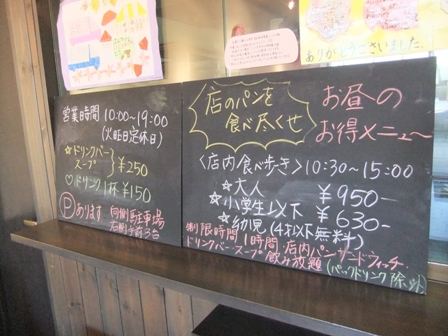 ありがとうございました。
営業時間 10:00~19:00
(火曜日定休日)
☆ドリンクバー
スープ } ¥250
♡ドリンク1杯 ¥150
Ⓟあります 向側駐車場
右側手前3台
店のパンを
食べ尽くせ
お昼の
お得メニュー
〈店内食べ歩き〉10:30~15:00
☆大人 ¥950-
☆小学生以下 ¥630-
☆幼児(4才以下無料)
制限時間1時間 店内パン・サンドウィッチ・
ドリンクバー・スープ 飲み放題(パックドリンク除外)